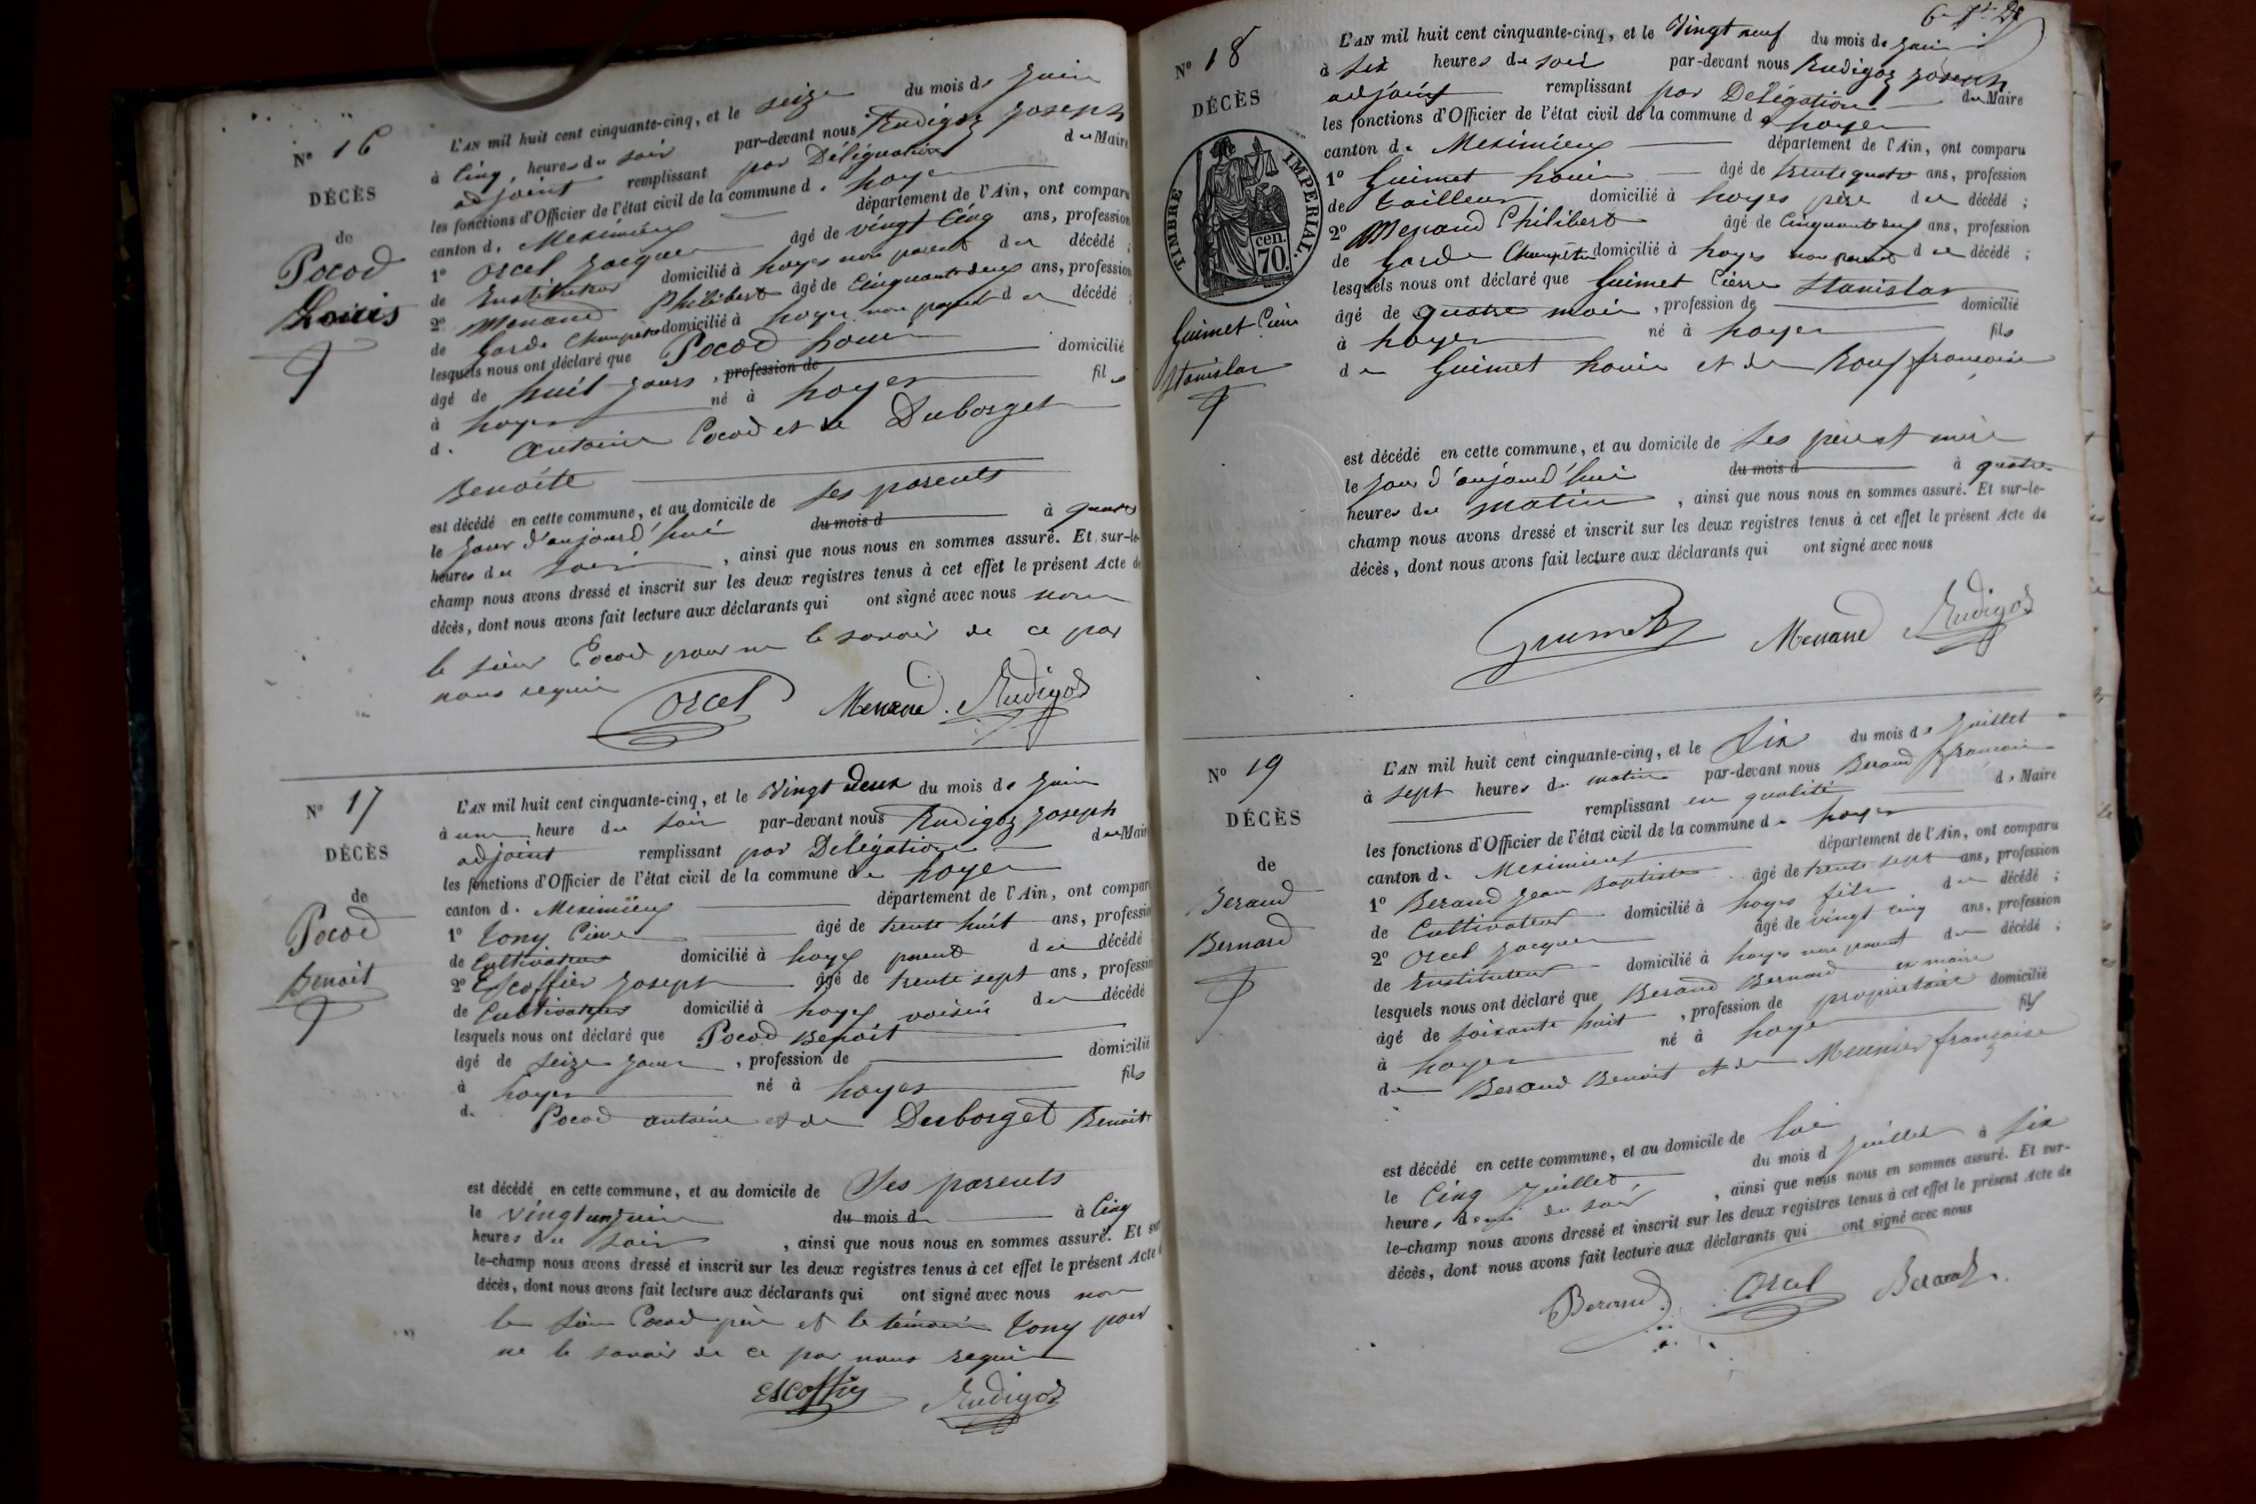 N° 16
DÉCÈS
de
Pocod
Louis
L'AN mil huit cent cinquante-cinq, et le seize du mois de Juin
à Cinq heures du soir par-devant nous Rudigoz Joseph
adjoint remplissant par Délégation du Maire
les fonctions d'Officier de l'état civil de la commune de Loyes
canton de Meximieux département de l'Ain, ont comparu
1° Orcel Jacques âgé de vingt Cinq ans, profession
de Instituteur domicilié à Loyes non parent du décédé ;
2° Menand Philibert âgé de Cinquante deux ans, profession
de Garde Champêtre domicilié à Loyes non parent du décédé ;
lesquels nous ont déclaré que Pocod Louis
âgé de huit Jours , profession de domicilié
à Loyes né à Loyes fils
de Antoine Pocod et de Duborget
Benoite
est décédé en cette commune, et au domicile de ses parents
le Jour d'aujourd'hui du mois d à quatre
heures du soir , ainsi que nous nous en sommes assuré. Et sur-le-
champ nous avons dressé et inscrit sur les deux registres tenus à cet effet le présent Acte de
décès, dont nous avons fait lecture aux déclarants qui ont signé avec nous non
le sieur Pocod pour ne le savoir de ce par
nous requis
Orcel Menand Rudigoz
N° 17
DÉCÈS
de
Pocod
Benoit
L'AN mil huit cent cinquante-cinq, et le Vingt deux du mois de Juin
à une heure du soir par-devant nous Rudigoz Joseph
adjoint remplissant par Délégation du Maire
les fonctions d'Officier de l'état civil de la commune de Loyes
canton de Meximieux département de l'Ain, ont comparu
1° Tony Pierre âgé de trente huit ans, profession
de Cultivateur domicilié à Loyes parent du décédé
2° Escoffier Joseph âgé de trente sept ans, profession
de Cultivateur domicilié à Loyes voisin du décédé
lesquels nous ont déclaré que Pocod Benoit
âgé de seize Jours , profession de domicilié
à Loyes né à Loyes fils
de Pocod antoine et de Duborget Benoite
est décédé en cette commune, et au domicile de Ses parents
le vingt un Juin du mois d à Cinq
heures du soir , ainsi que nous nous en sommes assuré. Et sur-
le-champ nous avons dressé et inscrit sur les deux registres tenus à cet effet le présent Acte
décès, dont nous avons fait lecture aux déclarants qui ont signé avec nous non
le sieur Pocod père et le témoin Tony pour
ne le savoir de ce par nous requis
Escoffier Rudigoz
N° 18
DÉCÈS
TIMBRE IMPÉRIAL.
70 cen.
Guimet Pierre
Stanislas
L'AN mil huit cent cinquante-cinq, et le Vingt neuf du mois de Juin
à six heures du soir par-devant nous Rudigoz Joseph
adjoint remplissant par Délégation du Maire
les fonctions d'Officier de l'état civil de la commune de Loyes
canton de Meximieux département de l'Ain, ont comparu
1° Guimet Louis âgé de trente quatre ans, profession
de tailleur domicilié à Loyes père du décédé ;
2° Menand Philibert âgé de Cinquante deux ans, profession
de Garde Champêtre domicilié à Loyes non parent du décédé ;
lesquels nous ont déclaré que Guimet Pierre Stanislas
âgé de quatre mois , profession de domicilié
à Loyes né à Loyes fils
de Guimet Louis et de françoise
est décédé en cette commune, et au domicile de ses père et mère
le Jour d'aujourd'hui du mois d à quatre
heures du matin , ainsi que nous nous en sommes assuré. Et sur-le-
champ nous avons dressé et inscrit sur les deux registres tenus à cet effet le présent Acte de
décès, dont nous avons fait lecture aux déclarants qui ont signé avec nous
Guimet Menand Rudigoz
N° 19
DÉCÈS
de
Beraud
Bernard
L'AN mil huit cent cinquante-cinq, et le Six du mois de Juillet
à sept heures du matin par-devant nous Beraud françois
remplissant en qualité de Maire
les fonctions d'Officier de l'état civil de la commune de Loyes
canton de Meximieux département de l'Ain, ont comparu
1° Beraud Jean Baptiste âgé de trente sept ans, profession
de Cultivateur domicilié à Loyes fils du décédé ;
2° Orcel Jacques âgé de vingt cinq ans, profession
de Instituteur domicilié à Loyes non parent du décédé ;
lesquels nous ont déclaré que Beraud Bernard ex maire
âgé de soixante huit , profession de propriétaire domicilié
à Loyes né à Loyes fils
de Beraud Benoit et de Meunier françoise
est décédé en cette commune, et au domicile de lui
le Cinq Juillet du mois d Juillet à six
heures du soir , ainsi que nous nous en sommes assuré. Et sur-
le-champ nous avons dressé et inscrit sur les deux registres tenus à cet effet le présent Acte de
décès, dont nous avons fait lecture aux déclarants qui ont signé avec nous
Beraud Orcel Beraud